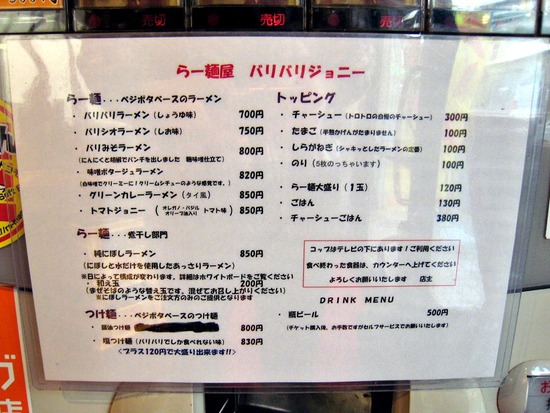 売切
売切
売切
らー麺屋 バリバリジョニー
らー麺...ベジポタベースのラーメン
・バリバリラーメン(しょうゆ味) 700円
・バリシオラーメン(しお味) 750円
・バリみそラーメン 800円
(にんにくと胡椒でパンチを出しました 麺味噌仕立て)
・味噌ポタージュラーメン 820円
(白味噌でクリーミーに!クリームシチューのような感覚です。)
・グリーンカレーラーメン(タイ風) 850円
・トマトジョニー (オレガノ・バジル オリーブ油入り トマト味) 850円
らー麺...煮干し部門
・純にぼしラーメン 850円
(にぼしと水だけを使用したあっさりラーメン)
※日によって構成が変わります、詳細はホワイトボードをご覧ください
・和え玉 200円
(まぜそばのような替え玉です、混ぜてお召し上がりください)
※にぼしラーメンをご注文方のみのご提供となります
つけ麺...ベジポタベースのつけ麺
・醤油つけ麺 800円
・塩つけ麺(バリバリでしか食べれない味) 830円
<プラス120円で大盛り出来ます!!>
トッピング
・チャーシュー(トロトロの自慢のチャーシュー) 300円
・たまご(半熟かげんがたまりません) 100円
・しらがねぎ(シャキッとしたラーメンの定番) 100円
・のり(5枚のっちゃいます) 100円
・らー麺大盛り(1玉) 120円
・ごはん 130円
・チャーシューごはん 380円
コップはテレビの下にあります!ご利用ください
食べ終わった食器は、カウンターへ上げてください
よろしくお願いいたします 店主
DRINK MENU
・瓶ビール 500円
(チケット購入後、お手数ですがセルフサービスでお願いいたします)